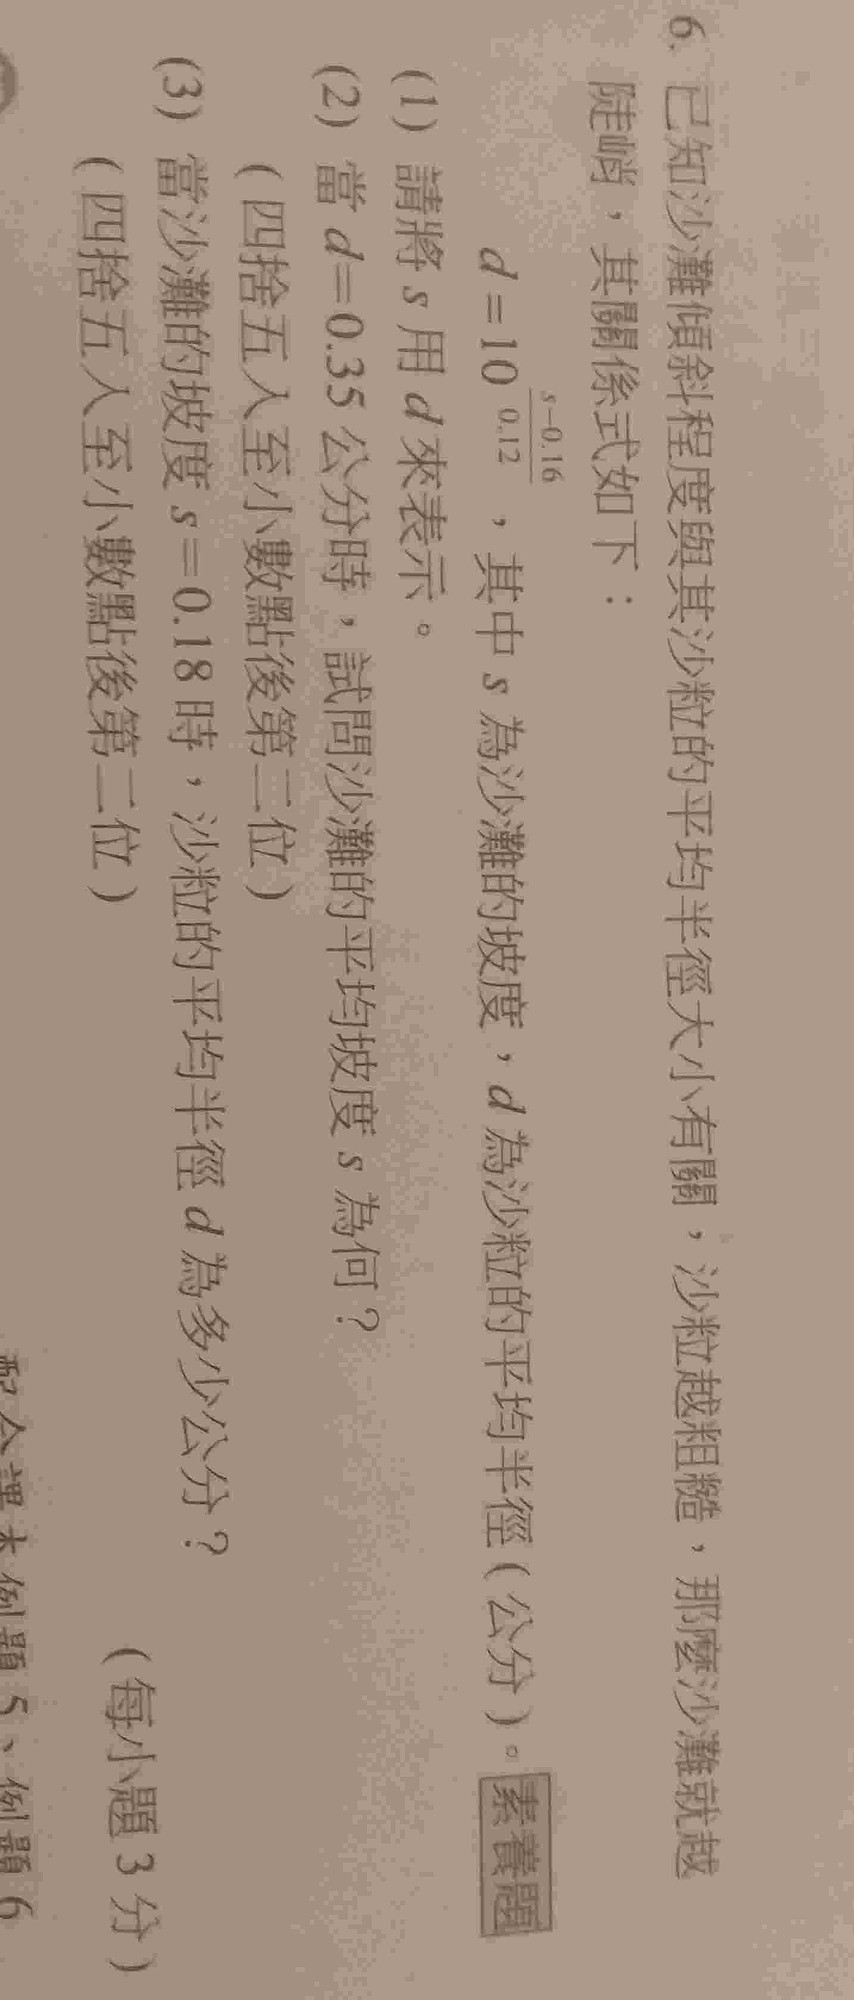 6. 已知沙灘傾斜程度與其沙粒的平均半徑大小有關，沙粒越粗糙，那麼沙灘就越
陡峭，其關係式如下：
d=10^{\frac{s-0.16}{0.12}}，其中 s 為沙灘的坡度，d 為沙粒的平均半徑（公分）。素養題
(1) 請將 s 用 d 來表示。
(2) 當 d=0.35 公分時，試問沙灘的平均坡度 s 為何？
（四捨五入至小數點後第三位）
(3) 當沙灘的坡度 s=0.18 時，沙粒的平均半徑 d 為多少公分？
（四捨五入至小數點後第二位）
（每小題 3 分）
配合課本例題 5、例題 6